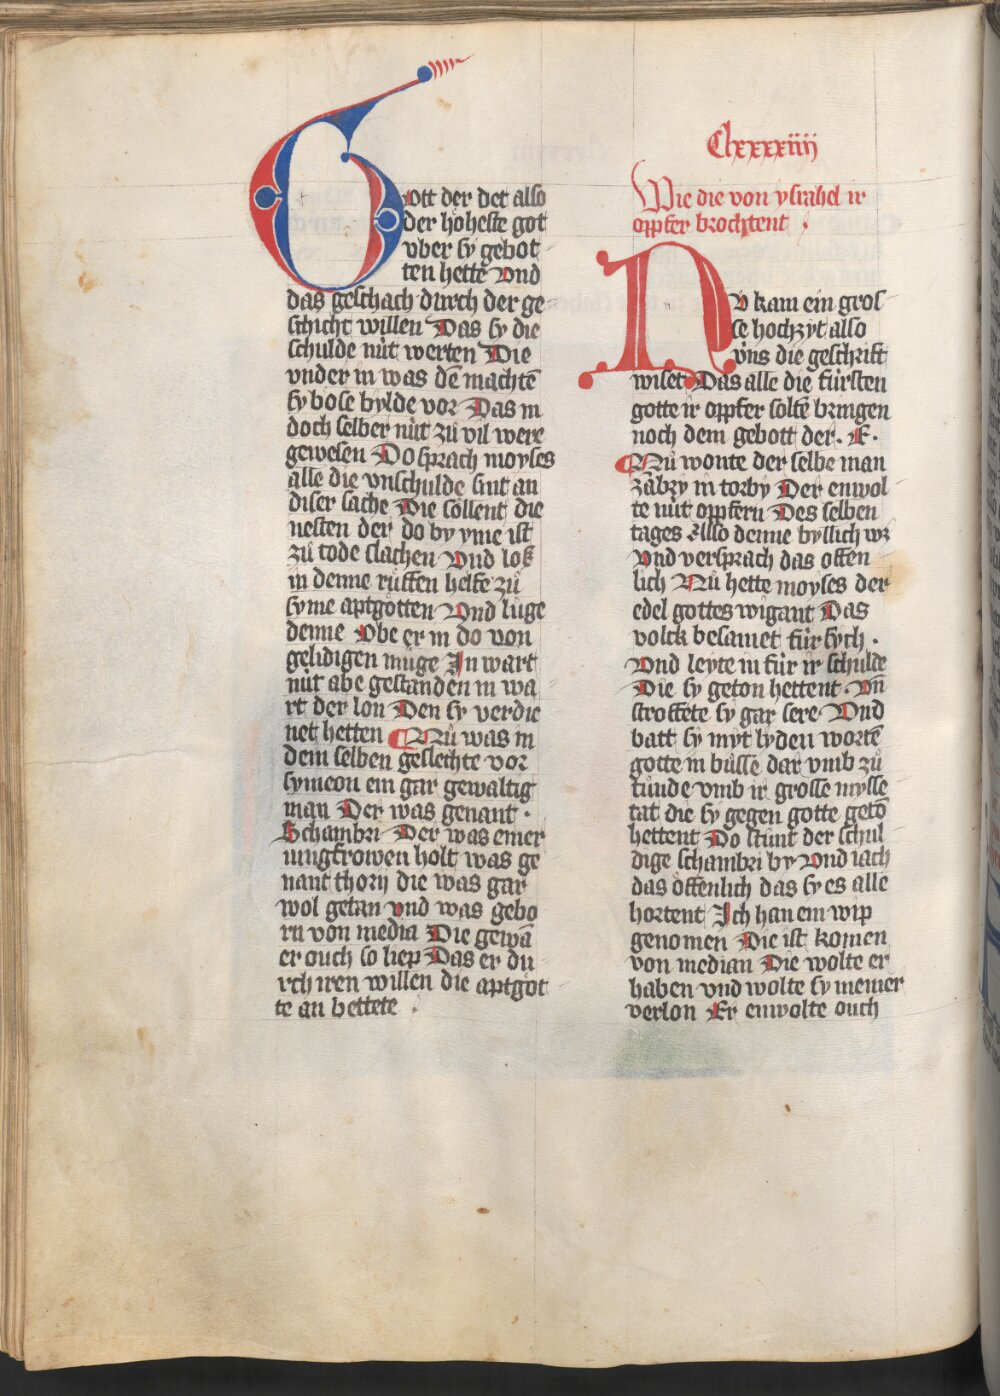 Gott der det also
der höheste got
vber sy gebot
ten hette Vnd
das geschach durch der ge
schicht willen Das sy die
schulde nüt werten Die
vnder in was dē machtē
sy böse bylde vor Das in
doch selber nüt zů vil were
gewesen Do sprach moyses
alle die vnschulde sint an
diser sache Die söllent die
nesten der do by yme ist
zů tode slachen Vnd los
in denne rüffen helfe zů
syme aptgotten Vnd lůge
denne Obe er in do von
gelidigen müge In wart
nüt abe gestanden in wa
rt der lon Den sy verdie
net hetten Nů was in
dem selben geslechte vor
symeon ein gar gewaltig
man Der was genant ·
Schambri Der was einer
iungfrowen holt was ge
nant thorij die was gar
wol getan vnd was gebo
rn von media Die gewā
er ouch so liep Das er du
rch iren willen die aptgöt
te an bettete .
Clxxxxiiij
Wie die von ysrahel ir
opfer brochtent .
Nv kam ein gros
se hochzyt also
vns die geschrift
wiset Das alle die fürsten
gotte ir opfer soltē bringen
noch dem gebott der. E.
Nů wonte der selbe man
zābry in torby Der enwol
te nüt opfern Des selben
tages Also denne byllich wz
Vnd versprach das offen
lich Nů hette moyses der
edel gottes wigant Das
volck besamet für sych .
Vnd leyte in für ir schulde
Die sy geton hettent. Vn̄
stroffete sy gar sere Vnd
batt sy myt lyden wortē
gotte in bůsse dar vmb zů
tůnde vmb ir grosse mysse
tat die sy gegen gotte getō
hettent Do stůnt der schul
dige schambri by Vnd iach
das offenlich das sy es alle
hortent Ich han ein wip
genomen Die ist komen
von median Die wolte er
haben vnd wolte sy niemer
verlon Er enwolte ouch